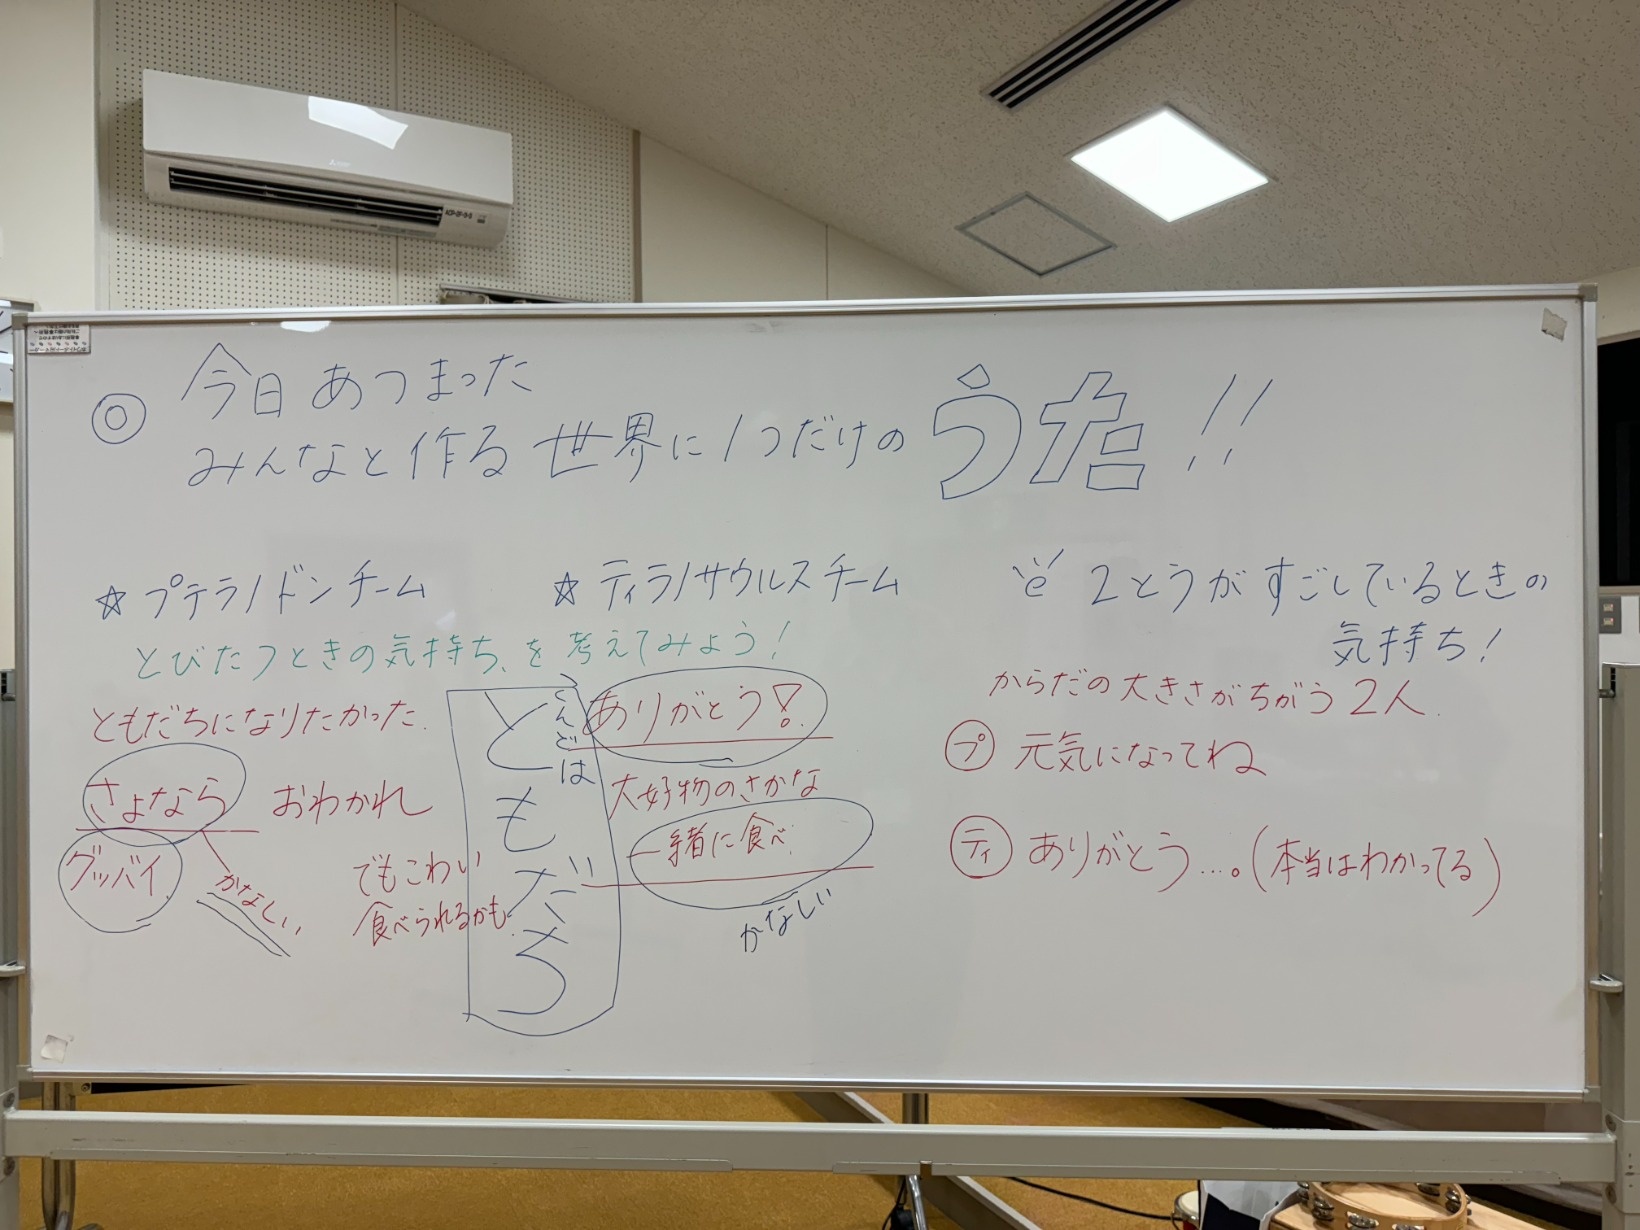 ◎ 今日あつまった
みんなと作る 世界に1つだけの うた!!
☆ プテラノドンチーム
☆ ティラノサウルスチーム
とびたつときの気持ち、を 考えてみよう!
ともだちになりたかった
さよなら おわかれ
グッバイ
かなしい
でもこわい
食べられるかも
こんどは
ともだち
ありがとう!
大好物のさかな
一緒に食べ
かなしい
2とうがすごしているときの
気持ち!
からだの大きさがちがう2人
プ 元気になってね
ティ ありがとう…。(本当はわかってる)